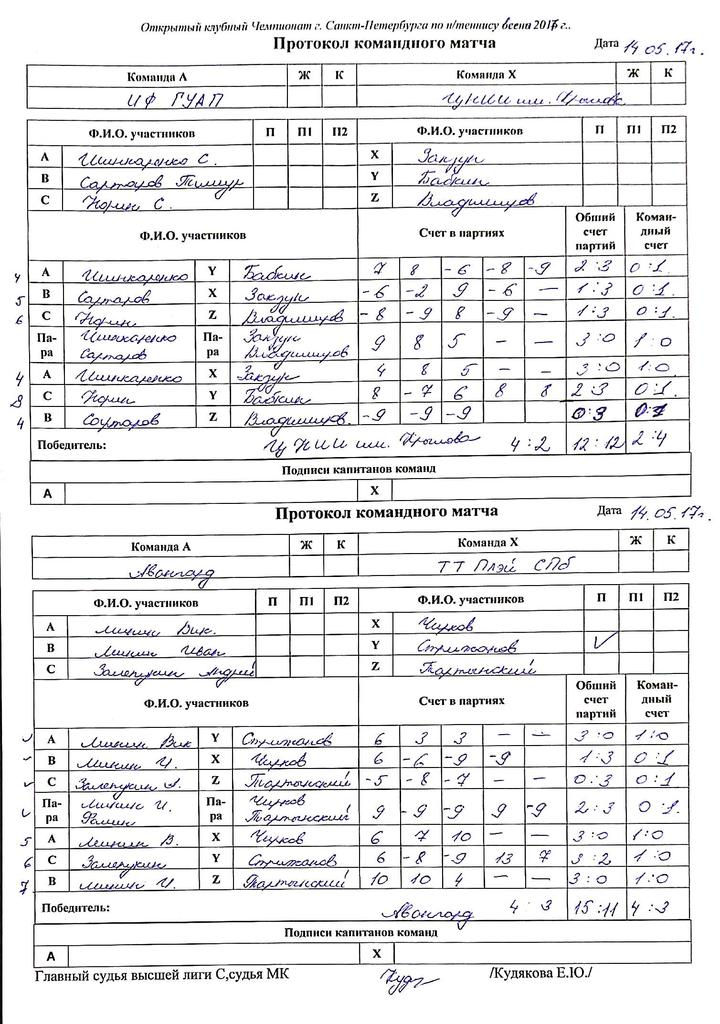 Открытый клубный Чемпионат г. Санкт-Петербурга по н/теннису весна 2017 г..
Протокол командного матча Дата 14.05.17г.
Команда А Ж К Команда Х Ж К
ИФ ГУАП ЦНИИ им. Крылова
Ф.И.О. участников П П1 П2 Ф.И.О. участников П П1 П2
A Шинкаренко С. X Закзун
B Сартаров Тимур Y Бабкин
C Норин С. Z Владимиров
Ф.И.О. участников Счет в партиях Общий счет партий Коман-дный счет
4 A Шинкаренко Y Бабкин 7 8 -6 -8 -9 2:3 0:1.
5 B Сартаров X Закзун -6 -2 9 -6 — 1:3 0:1.
6 C Норин Z Владимиров -8 -9 8 -9 — 1:3 0:1
Па-ра Шинкаренко Сартаров Па-ра Закзун Владимиров 9 8 5 — — 3:0 1:0
4 A Шинкаренко X Закзун 4 8 5 — — 3:0 1:0
8 C Норин Y Бабкин 8 -7 6 8 8 2:3 0:1
4 B Сартаров Z Владимиров. -9 -9 -9 0:3 0:1
Победитель: ЦНИИ им. Крылова 4:2 12:12 2:4
Подписи капитанов команд
A X
Протокол командного матча Дата 14.05.17г.
Команда А Ж К Команда Х Ж К
Авангард ТТ Плэй СПб
Ф.И.О. участников П П1 П2 Ф.И.О. участников П П1 П2
A Минин Вик. X Чирков
B Минин Иван Y Стрижанов ✓
C Залепукин Андрей Z Тартынский
Ф.И.О. участников Счет в партиях Общий счет партий Коман-дный счет
✓ A Минин Вик Y Стрижанов 6 3 3 — — 3:0 1:0
✓ B Минин И. X Чирков 6 -6 -9 -9 1:3 0:1
✓ C Залепукин А. Z Тартынский -5 -8 -7 — — 0:3 0:1
✓ Па-ра Минин И. Фамин Па-ра Чирков Тартынский 9 -9 -9 9 -9 2:3 0:1.
5 A Минин В. X Чирков 6 7 10 — — 3:0 1:0
6 C Залепукин Y Стрижанов 6 -8 -9 13 7 3:2 1:0
7 B Минин И. Z Тартынский 10 10 4 — — 3:0 1:0
Победитель: Авангард 4 3 15:11 4:3
Подписи капитанов команд
A X
Главный судья высшей лиги С,судья МК /Кудякова Е.Ю./